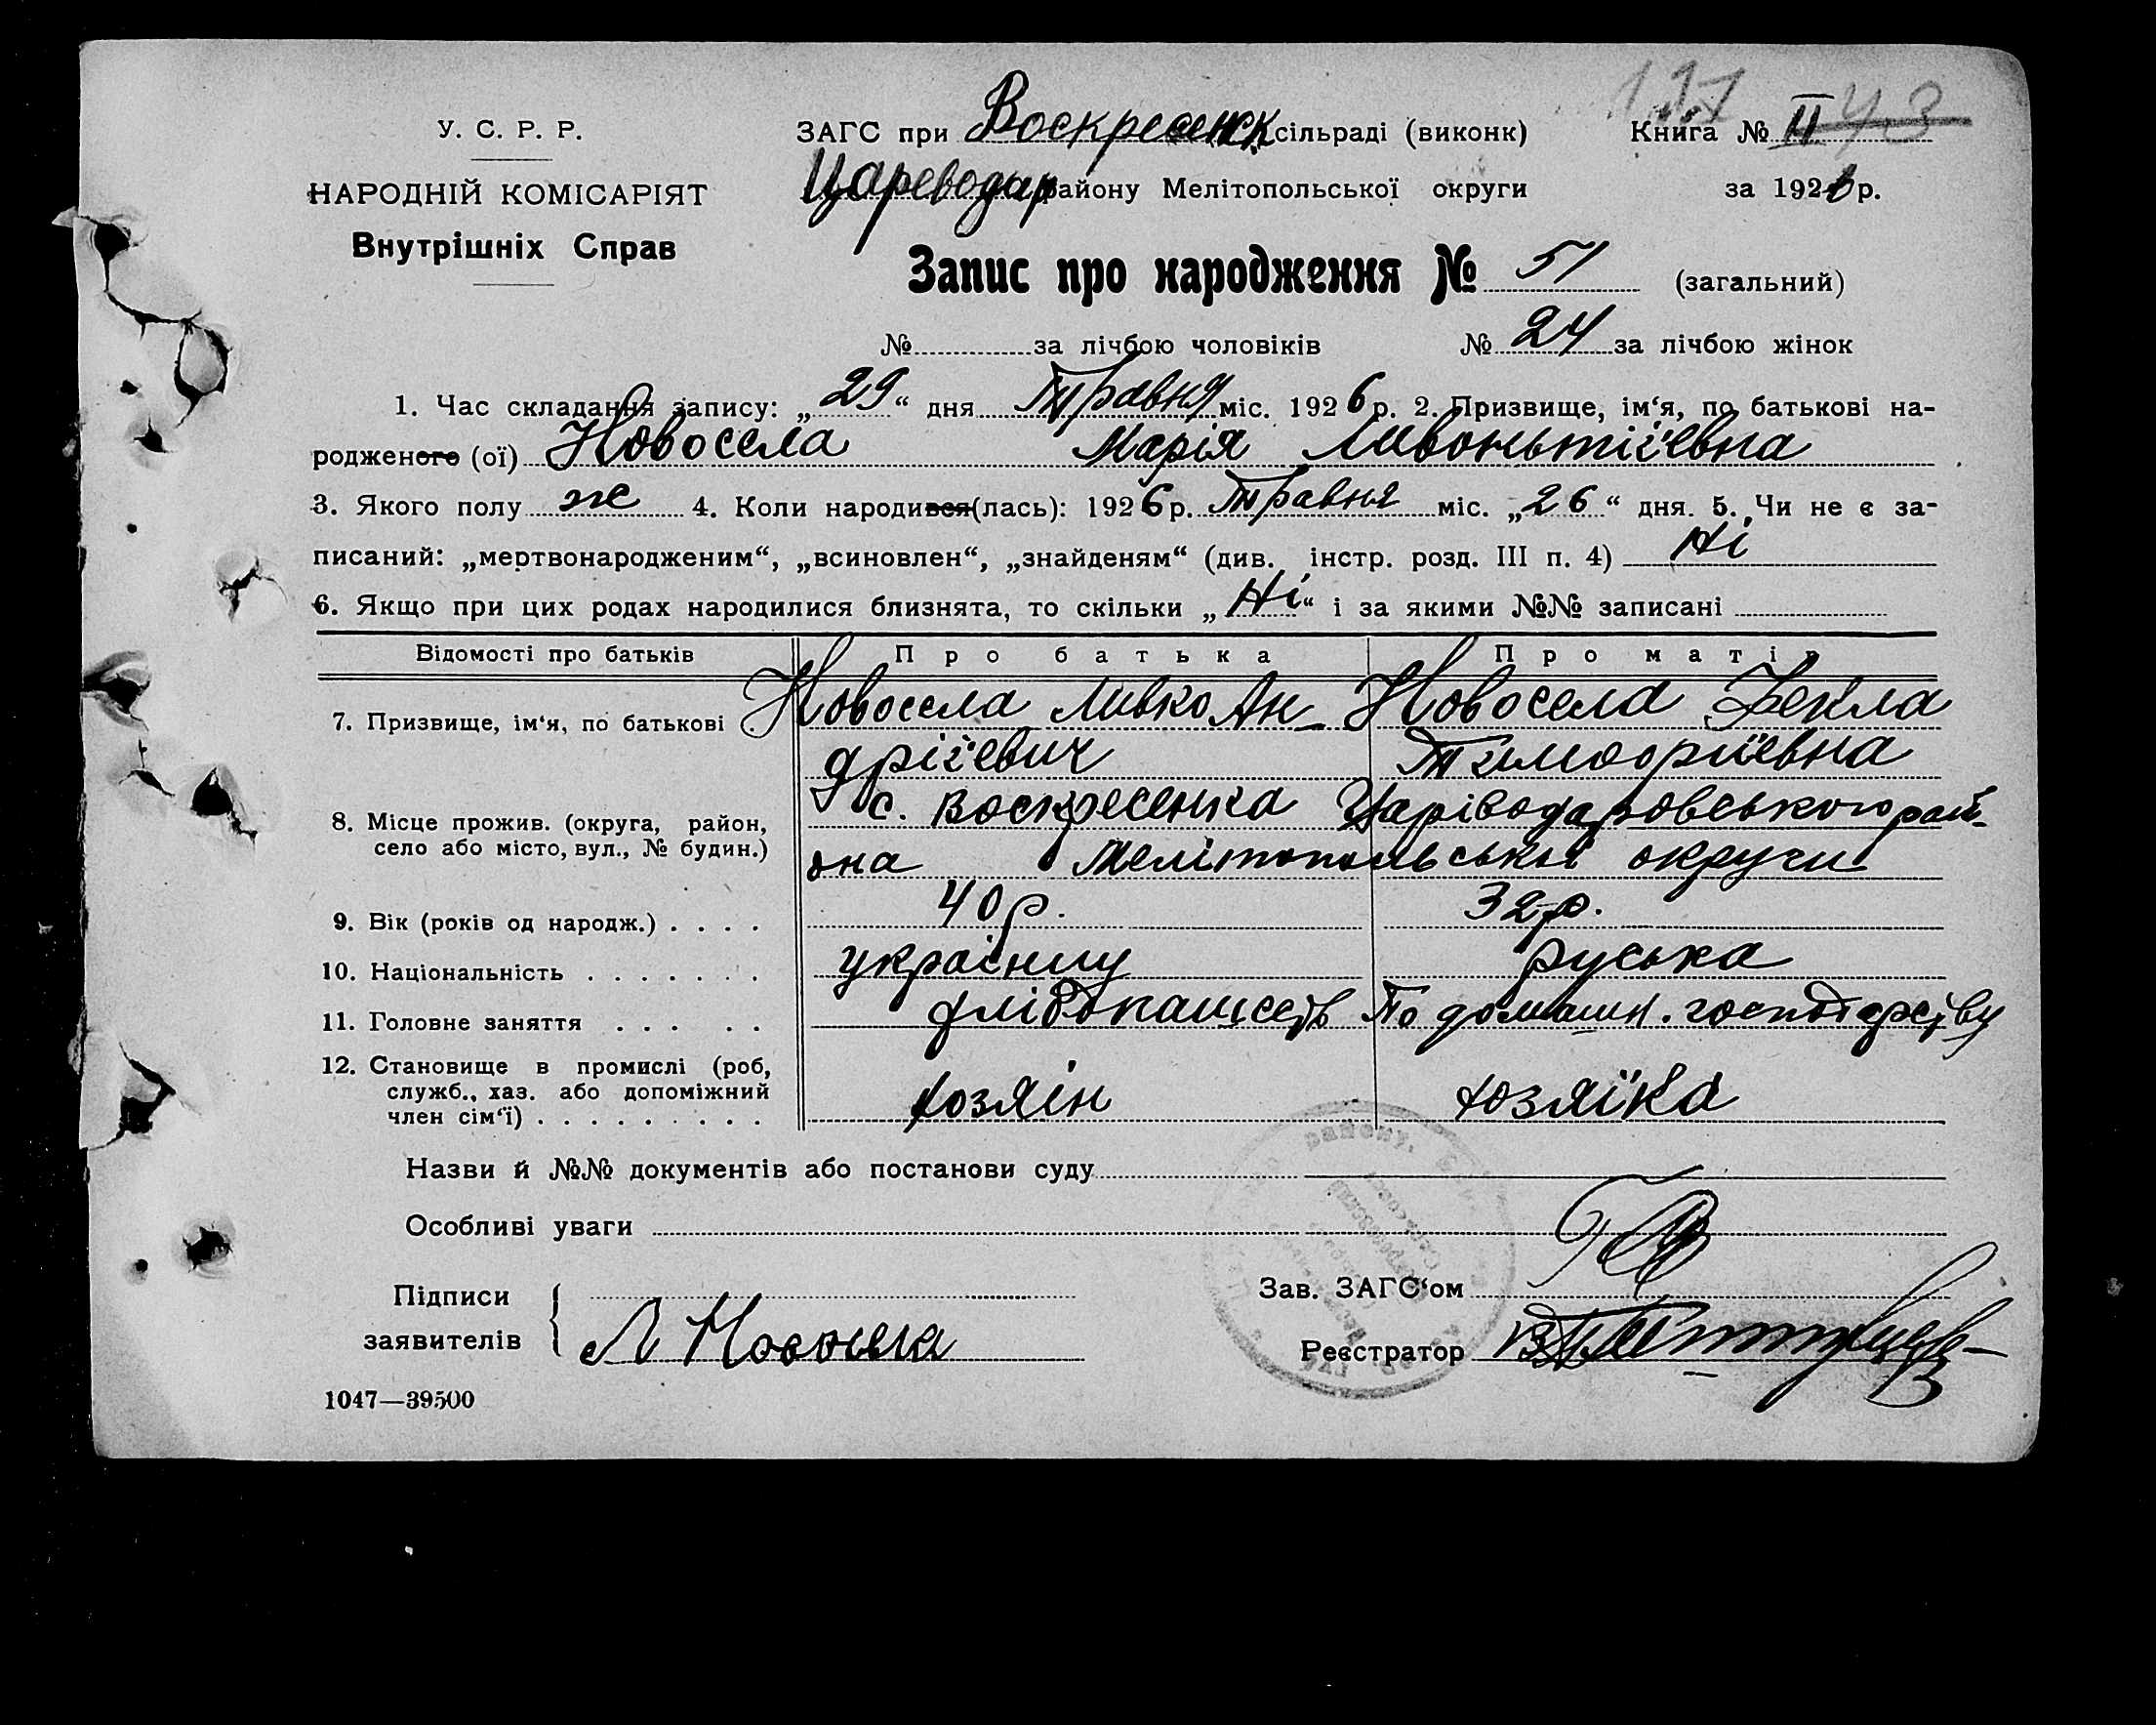 117
У. С. Р. Р.
НАРОДНІЙ КОМІСАРІЯТ
Внутрішніх Справ
ЗАГС при Воскресенск сільраді (виконк)
Книга № II 43
Цареводар району Мелітопольської округи
за 1926 р.
Запис про народження № 51 (загальний)
№ за лічбою чоловіків № 24 за лічбою жінок
1. Час складання запису: „29“ дня Травня міс. 1926 р. 2. Призвище, ім‘я, по батькові на-
родженого (ої) Новосела Марія Ливоньтіївна
3. Якого полу ж 4. Коли народився(лась): 1926 р. Травня міс. „26“ дня. 5. Чи не є за-
писаний: „мертвонародженим“, „всиновлен“, „знайденям“ (див. інстр. розд. III п. 4) Ні
6. Якщо при цих родах народилися близнята, то скільки „Ні“ і за якими №№ записані
Відомості про батьків Про батька Про матір
7. Призвище, ім‘я, по батькові Новосела Ливко Ан- Новосела Фекла
дрієвич Тимофіївна
8. Місце прожив. (округа, район, с. Воскресенка Царіводаровського рай-
село або місто, вул., № будин.) она Мелітопольськоі округи
9. Вік (років од народж.) . . . . 40 р. 32 р.
10. Національність . . . . . . . україниц руська
11. Головне заняття . . . . . По домашн. господарству
12. Становище в промислі (роб,
служб., хаз. або допоміжний
член сім‘ї) . . . . . . . . . хозяін хозяїка
Назви й №№ документів або постанови суду
Особливі уваги
Підписи
заявителів Л Новосела
Зав. ЗАГС‘ом
Реєстратор
1047—39500